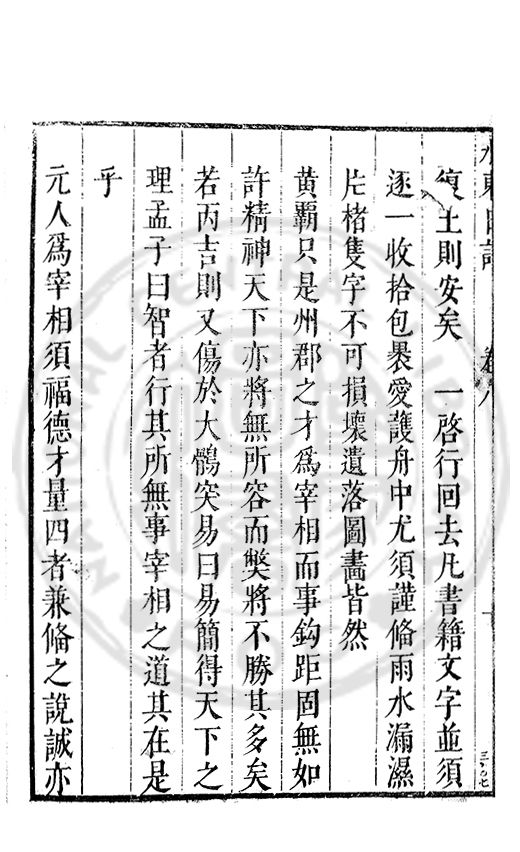 水東日記 卷八
復土則安矣　一啓行回去凡書籍文字並須
逐一收拾包裹愛護舟中尤須謹脩雨水漏濕
片楮隻字不可損壞遺落圖畫皆然
黄霸只是州郡之才為宰相而事鈎距固無如
許精神天下亦將無所容而獘將不勝其多矣
若丙吉則又傷於大鶻突易曰易簡得天下之
理孟子曰智者行其所無事宰相之道其在是
乎
元人為宰相須福德才量四者兼脩之說誠亦